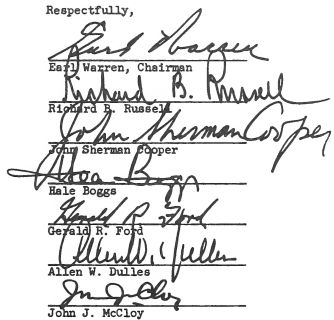 Respectfully,
Earl Warren
Earl Warren, Chairman
Richard B. Russell
Richard B. Russell
John Sherman Cooper
John Sherman Cooper
Hale Boggs
Hale Boggs
Gerald R. Ford
Gerald R. Ford
Allen W. Dulles
Allen W. Dulles
John J. McCloy
John J. McCloy